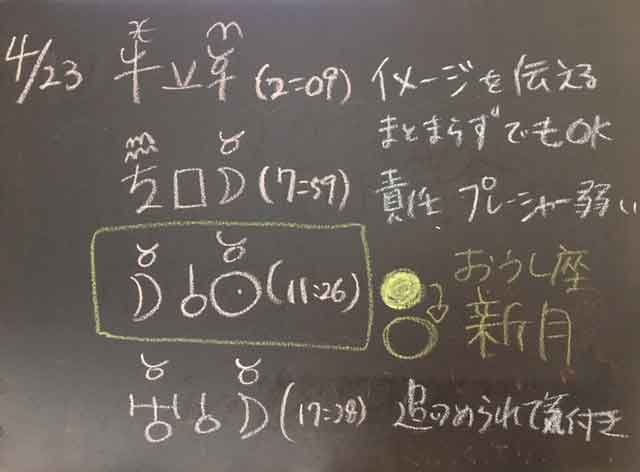 4/23 (2=09) イメージを伝える
まとまらずでもOK
♒ ♉
♄□☽(7=59) 責任 プレーシャー弱い
♉ ♉
☽☌☉(11:26) おうし座
新月
♉ ♉
♅☌☽(17=28)